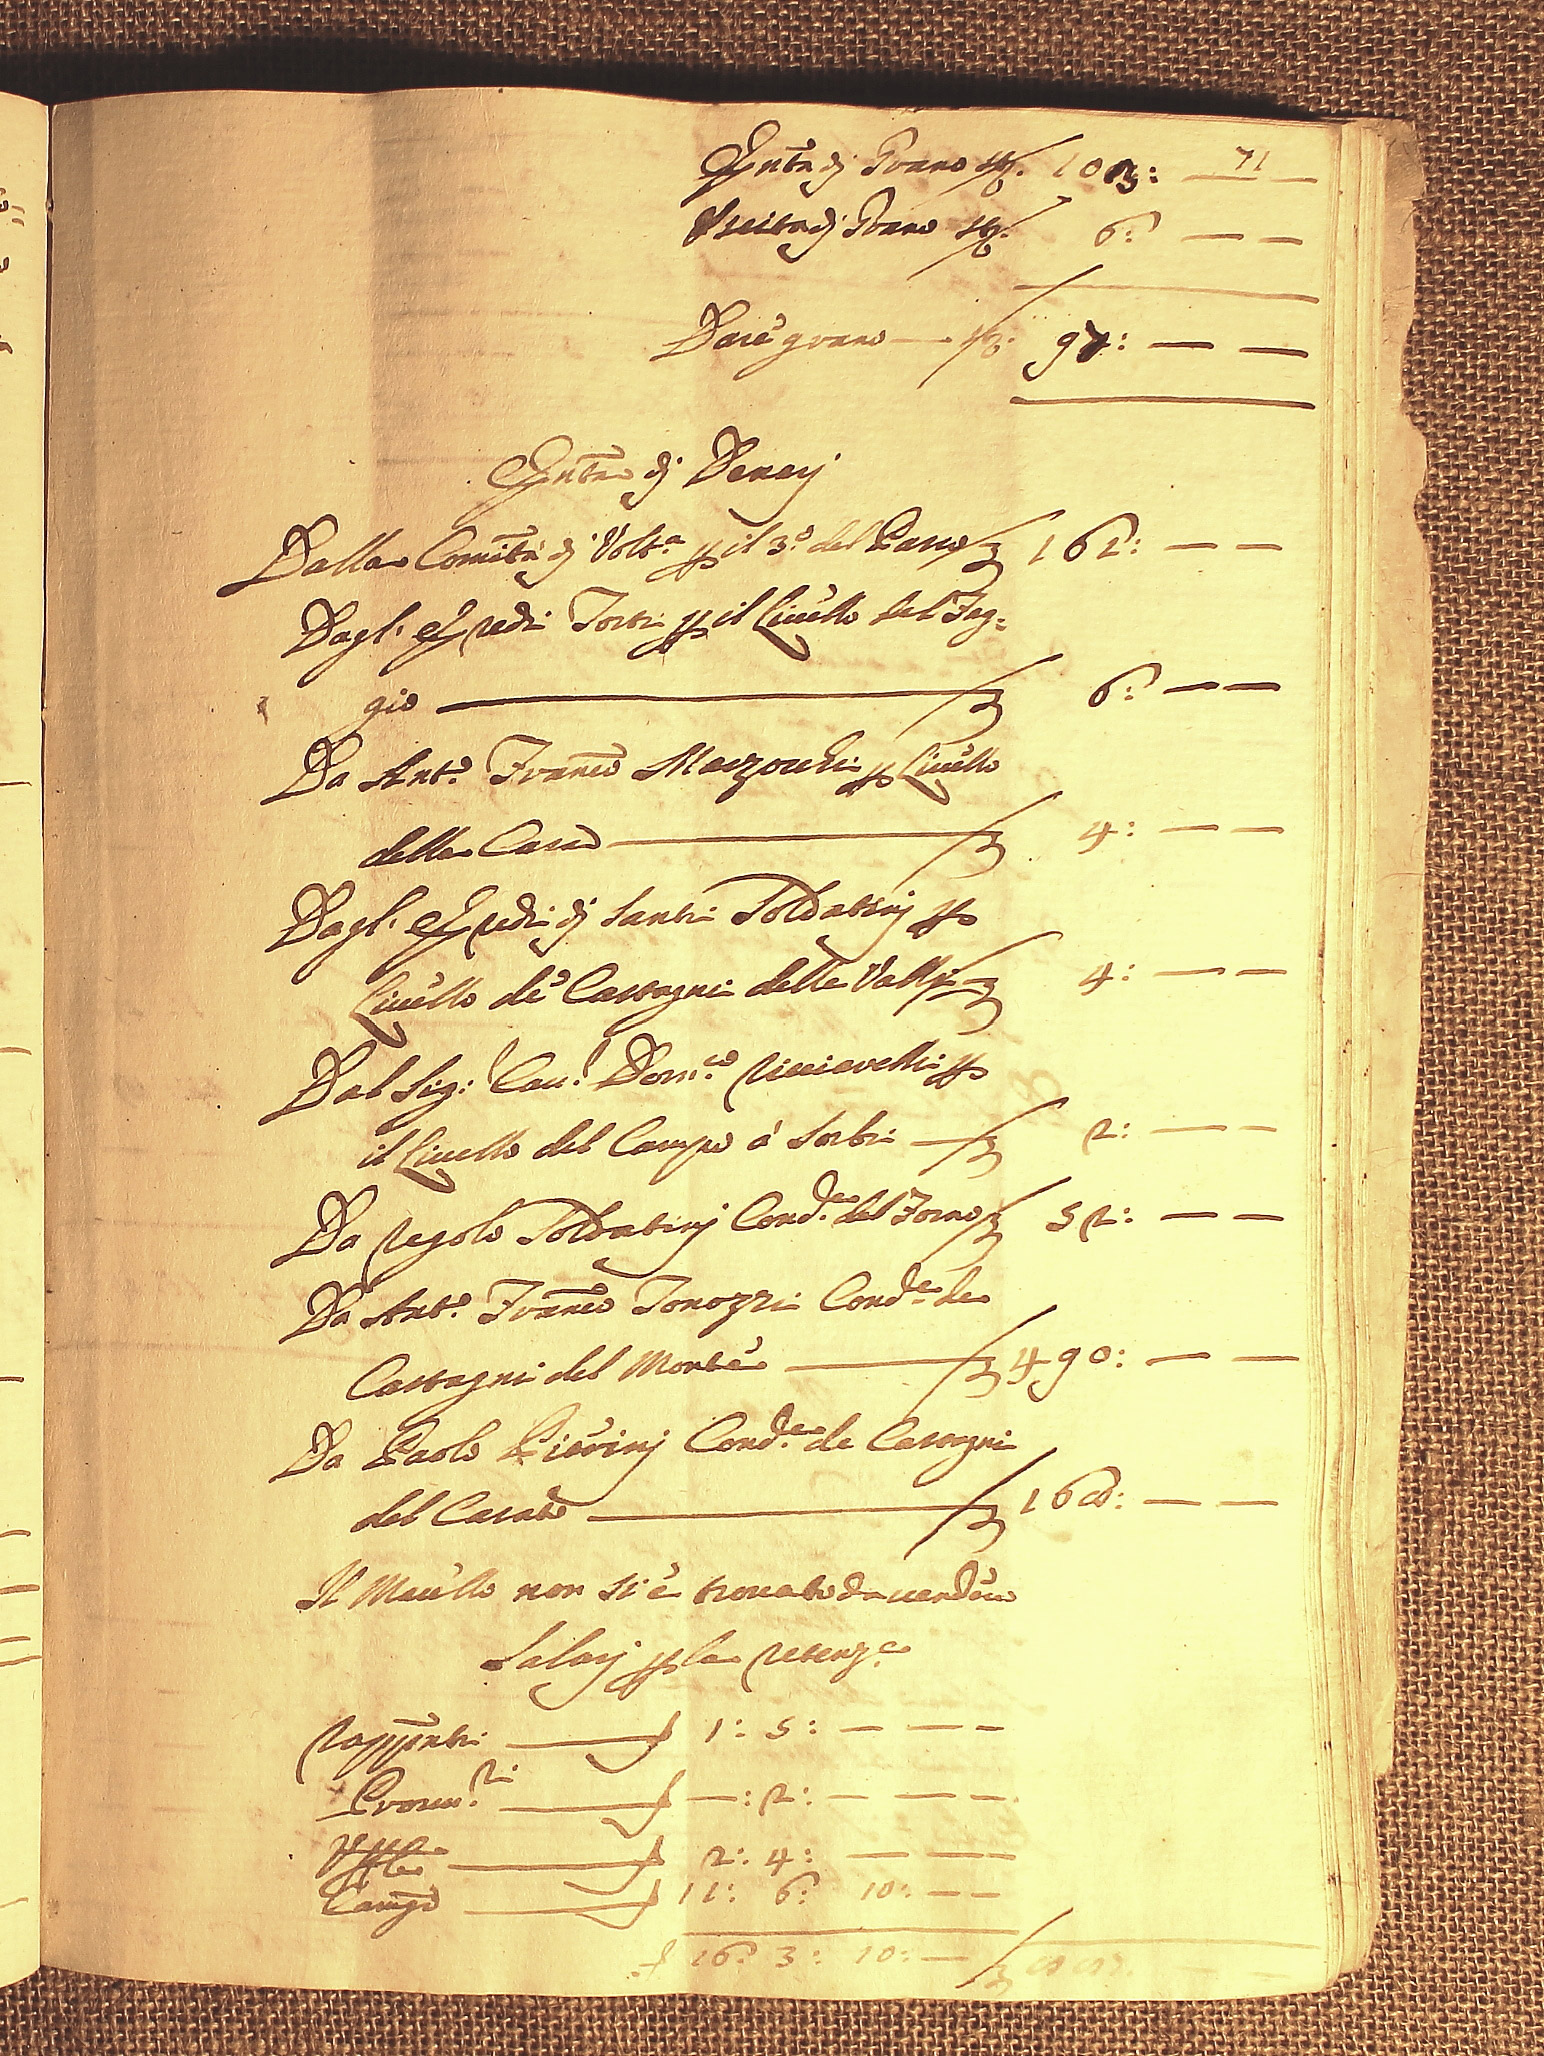 71
Entrà di Grano st. 103: — —
Uscita di Grano st. 6: — —
Darè grano — st. 97: — —
Entrà di Denarj
Dalla Comità di Volt.a p il 3.o del Passo 161: — —
Dagl'Eredi Torti p il Livello del Fag=
gio 6: — —
Da Ant.o Franco Mazzocchi p Livello
della Casa 4: — —
Dagl'Eredi di Santi Soldatinj p
Livello de Castagni delle Valli 4: — —
Dal Sig: Cav: Dom.co Ricciarelli p
il Livello del Campo à Sorbi 2: — —
Da Regolo Soldatinj Cond.e del Forno 52: — —
Da Ant.o Franco Tonozzi Cond.e de
Castagni del Monte 490: — —
Da Paolo Pierinj Cond.e de Castagni
del Casato 168: — —
Il Macello non si è trovato da vendere
Salarj p la retenz.e
Rapp.nti 1: 5: — — —
Provv.ri —: 2: — — —
2: 4: — — —
Camp.o 11: 6: 10: — —
16: 3: 10: —